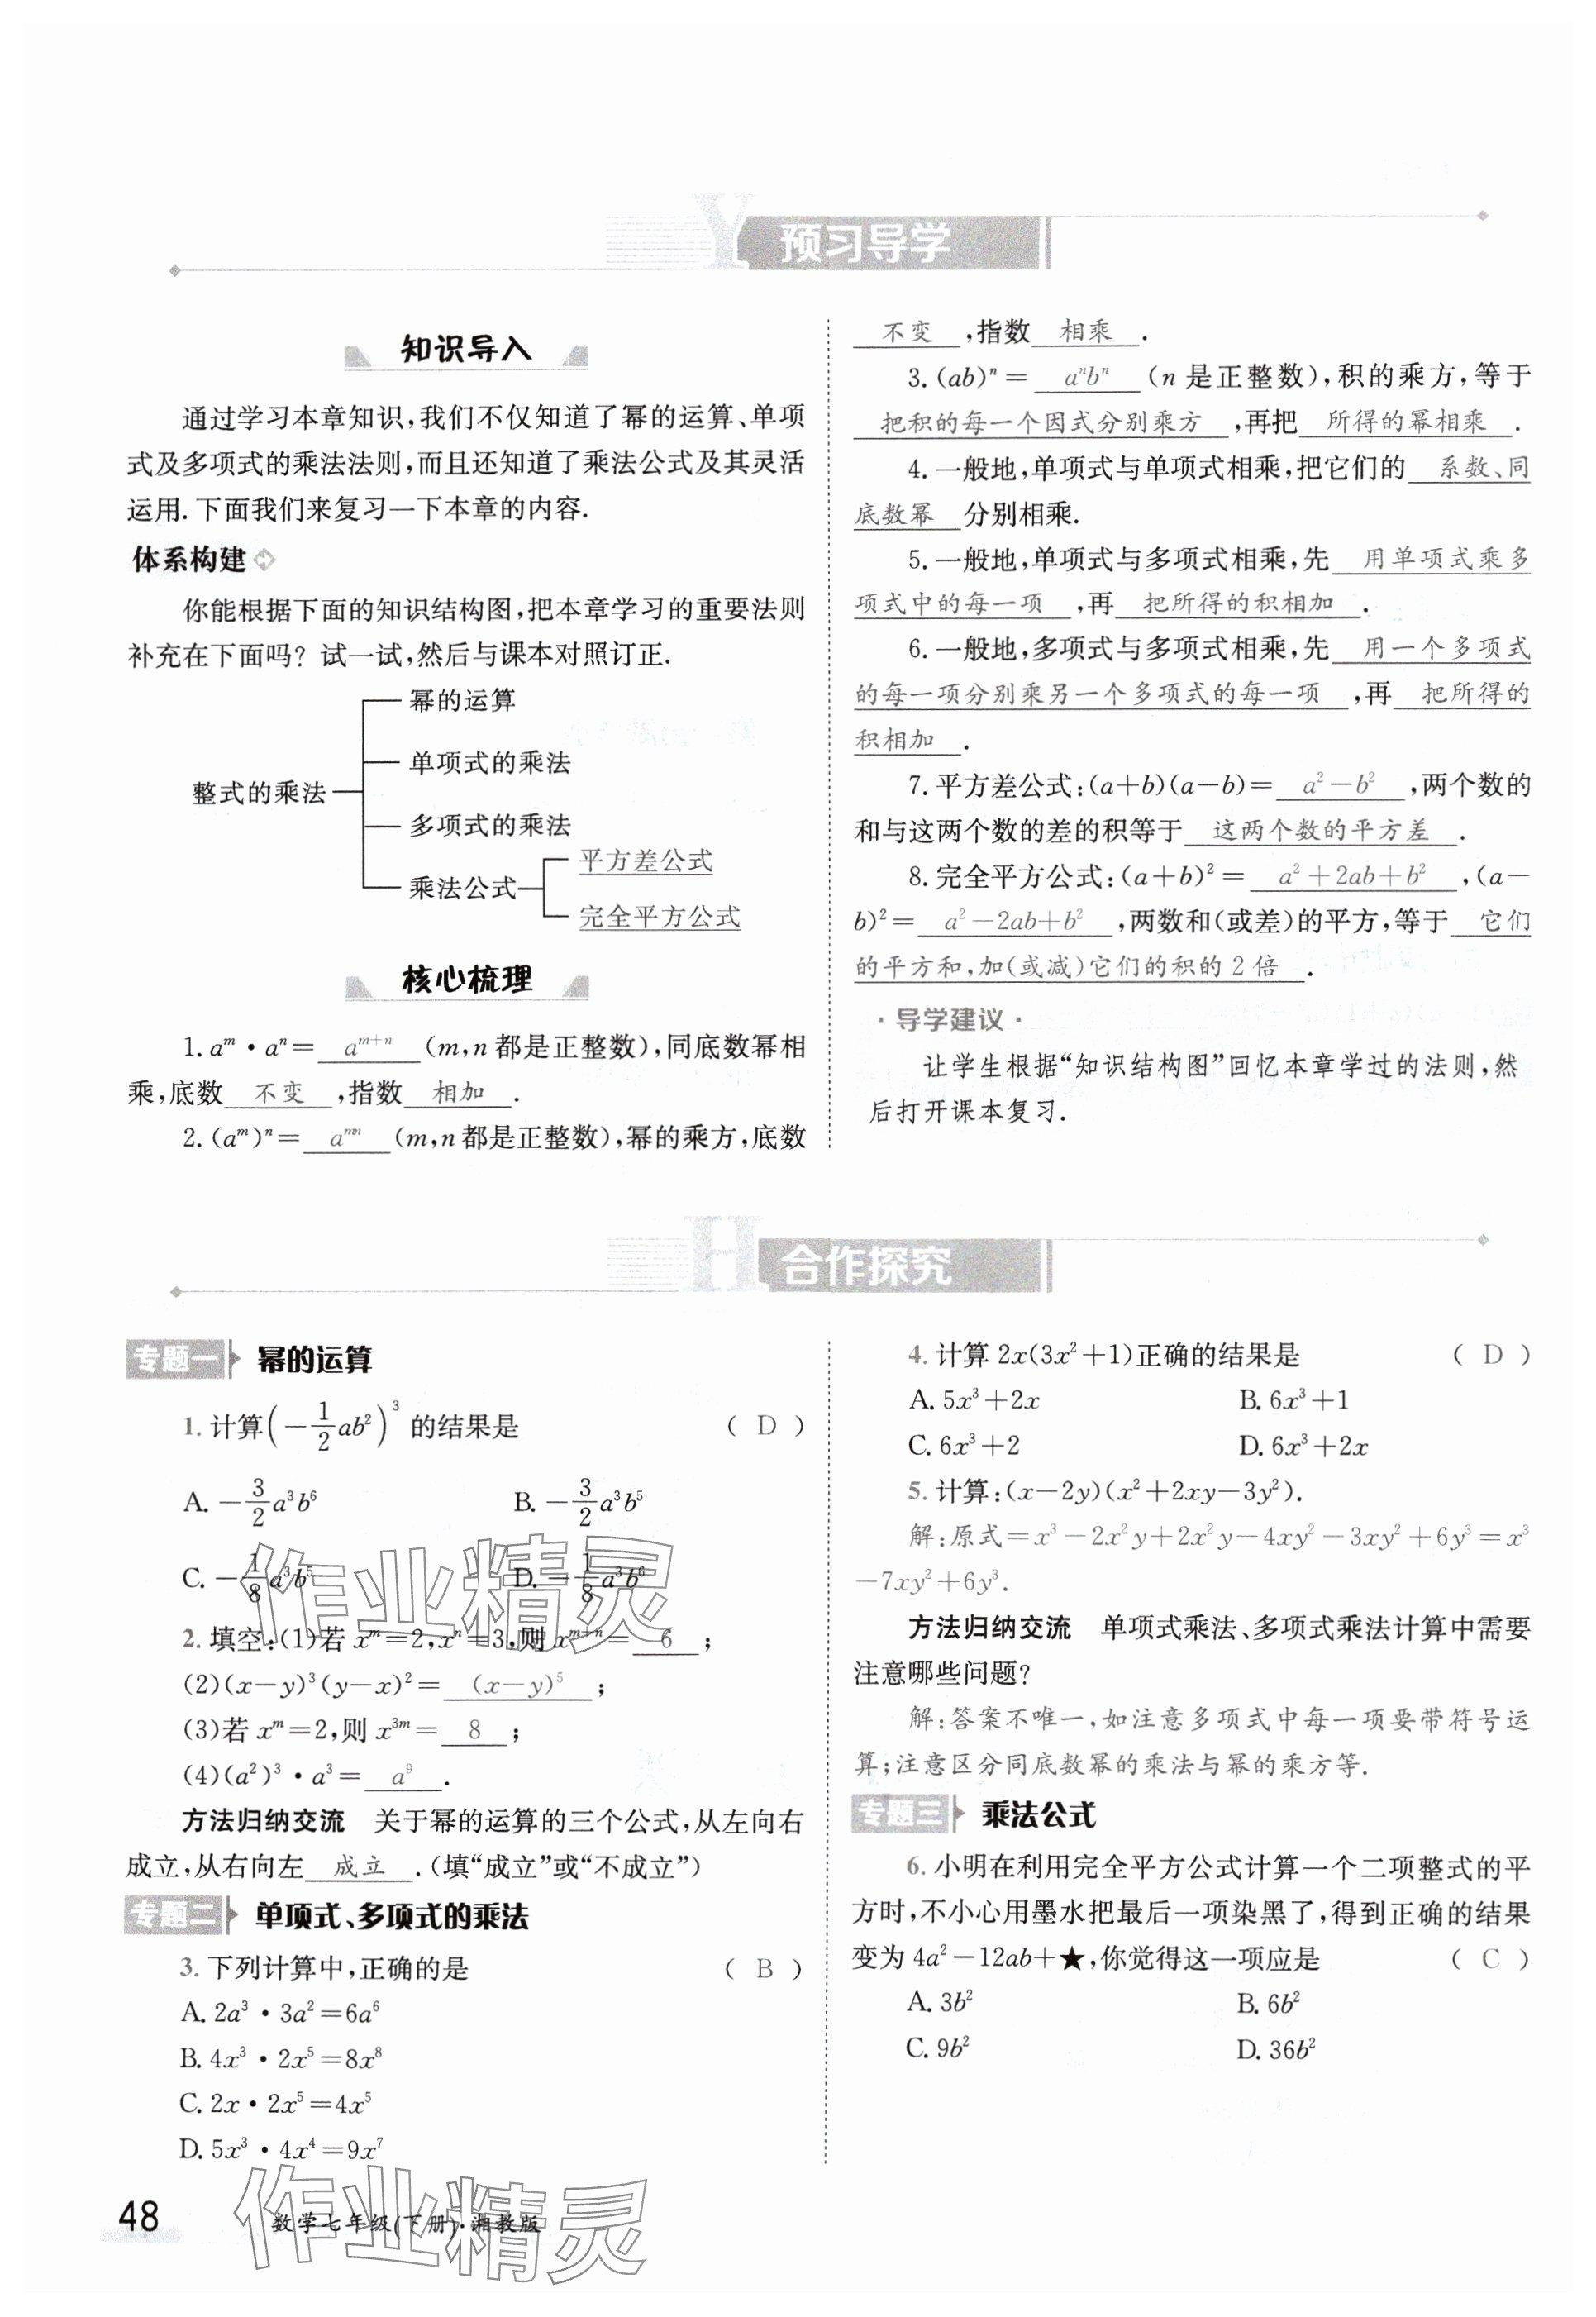 预习导学
知识导入
通过学习本章知识,我们不仅知道了幂的运算、单项
式及多项式的乘法法则,而且还知道了乘法公式及其灵活
运用.下面我们来复习一下本章的内容.
体系构建
你能根据下面的知识结构图,把本章学习的重要法则
补充在下面吗?试一试,然后与课本对照订正.
整式的乘法
幂的运算
单项式的乘法
多项式的乘法
乘法公式
平方差公式
完全平方公式
核心梳理
1. aᵐ·aⁿ= aᵐ⁺ⁿ (m,n都是正整数),同底数幂相
乘,底数 不变 ,指数 相加 .
2. (aᵐ)ⁿ= aᵐⁿ (m,n都是正整数),幂的乘方,底数
不变 ,指数 相乘 .
3. (ab)ⁿ= aⁿbⁿ (n是正整数),积的乘方,等于
把积的每一个因式分别乘方 ,再把 所得的幂相乘 .
4. 一般地,单项式与单项式相乘,把它们的 系数、同
底数幂 分别相乘.
5. 一般地,单项式与多项式相乘,先 用单项式乘多
项式中的每一项 ,再 把所得的积相加 .
6. 一般地,多项式与多项式相乘,先 用一个多项式
的每一项分别乘另一个多项式的每一项 ,再 把所得的
积相加 .
7. 平方差公式:(a+b)(a-b)= a²-b² ,两个数的
和与这两个数的差的积等于 这两个数的平方差 .
8. 完全平方公式:(a+b)²= a²+2ab+b² ,(a-
b)²= a²-2ab+b² ,两数和(或差)的平方,等于 它们
的平方和,加(或减)它们的积的2倍 .
·导学建议·
让学生根据“知识结构图”回忆本章学过的法则,然
后打开课本复习.
合作探究
专题一 幂的运算
1. 计算(-1/2 ab²)³的结果是 ( D )
A. -3/2 a³b⁶ B. -3/2 a³b⁵
C. -1/8 a³b⁵ D. -1/8 a³b⁶
2. 填空:(1)若xᵐ=2,xⁿ=3,则xᵐ⁺ⁿ= 6 ;
(2)(x-y)³(y-x)²= (x-y)⁵ ;
(3)若xᵐ=2,则x³ᵐ= 8 ;
(4)(a²)³·a³= a⁹ .
方法归纳交流 关于幂的运算的三个公式,从左向右
成立,从右向左 成立 .(填“成立”或“不成立”)
专题二 单项式、多项式的乘法
3. 下列计算中,正确的是 ( B )
A. 2a³·3a²=6a⁶
B. 4x³·2x⁵=8x⁸
C. 2x·2x⁵=4x⁵
D. 5x³·4x⁴=9x⁷
4. 计算2x(3x²+1)正确的结果是 ( D )
A. 5x³+2x B. 6x³+1
C. 6x³+2 D. 6x³+2x
5. 计算:(x-2y)(x²+2xy-3y²).
解:原式=x³-2x²y+2x²y-4xy²-3xy²+6y³=x³
-7xy²+6y³.
方法归纳交流 单项式乘法、多项式乘法计算中需要
注意哪些问题?
解:答案不唯一,如注意多项式中每一项要带符号运
算;注意区分同底数幂的乘法与幂的乘方等.
专题三 乘法公式
6. 小明在利用完全平方公式计算一个二项整式的平
方时,不小心用墨水把最后一项染黑了,得到正确的结果
变为4a²-12ab+★,你觉得这一项应是 ( C )
A. 3b² B. 6b²
C. 9b² D. 36b²
48
数学七年级(下册)·湘教版
作业精灵
作业精灵